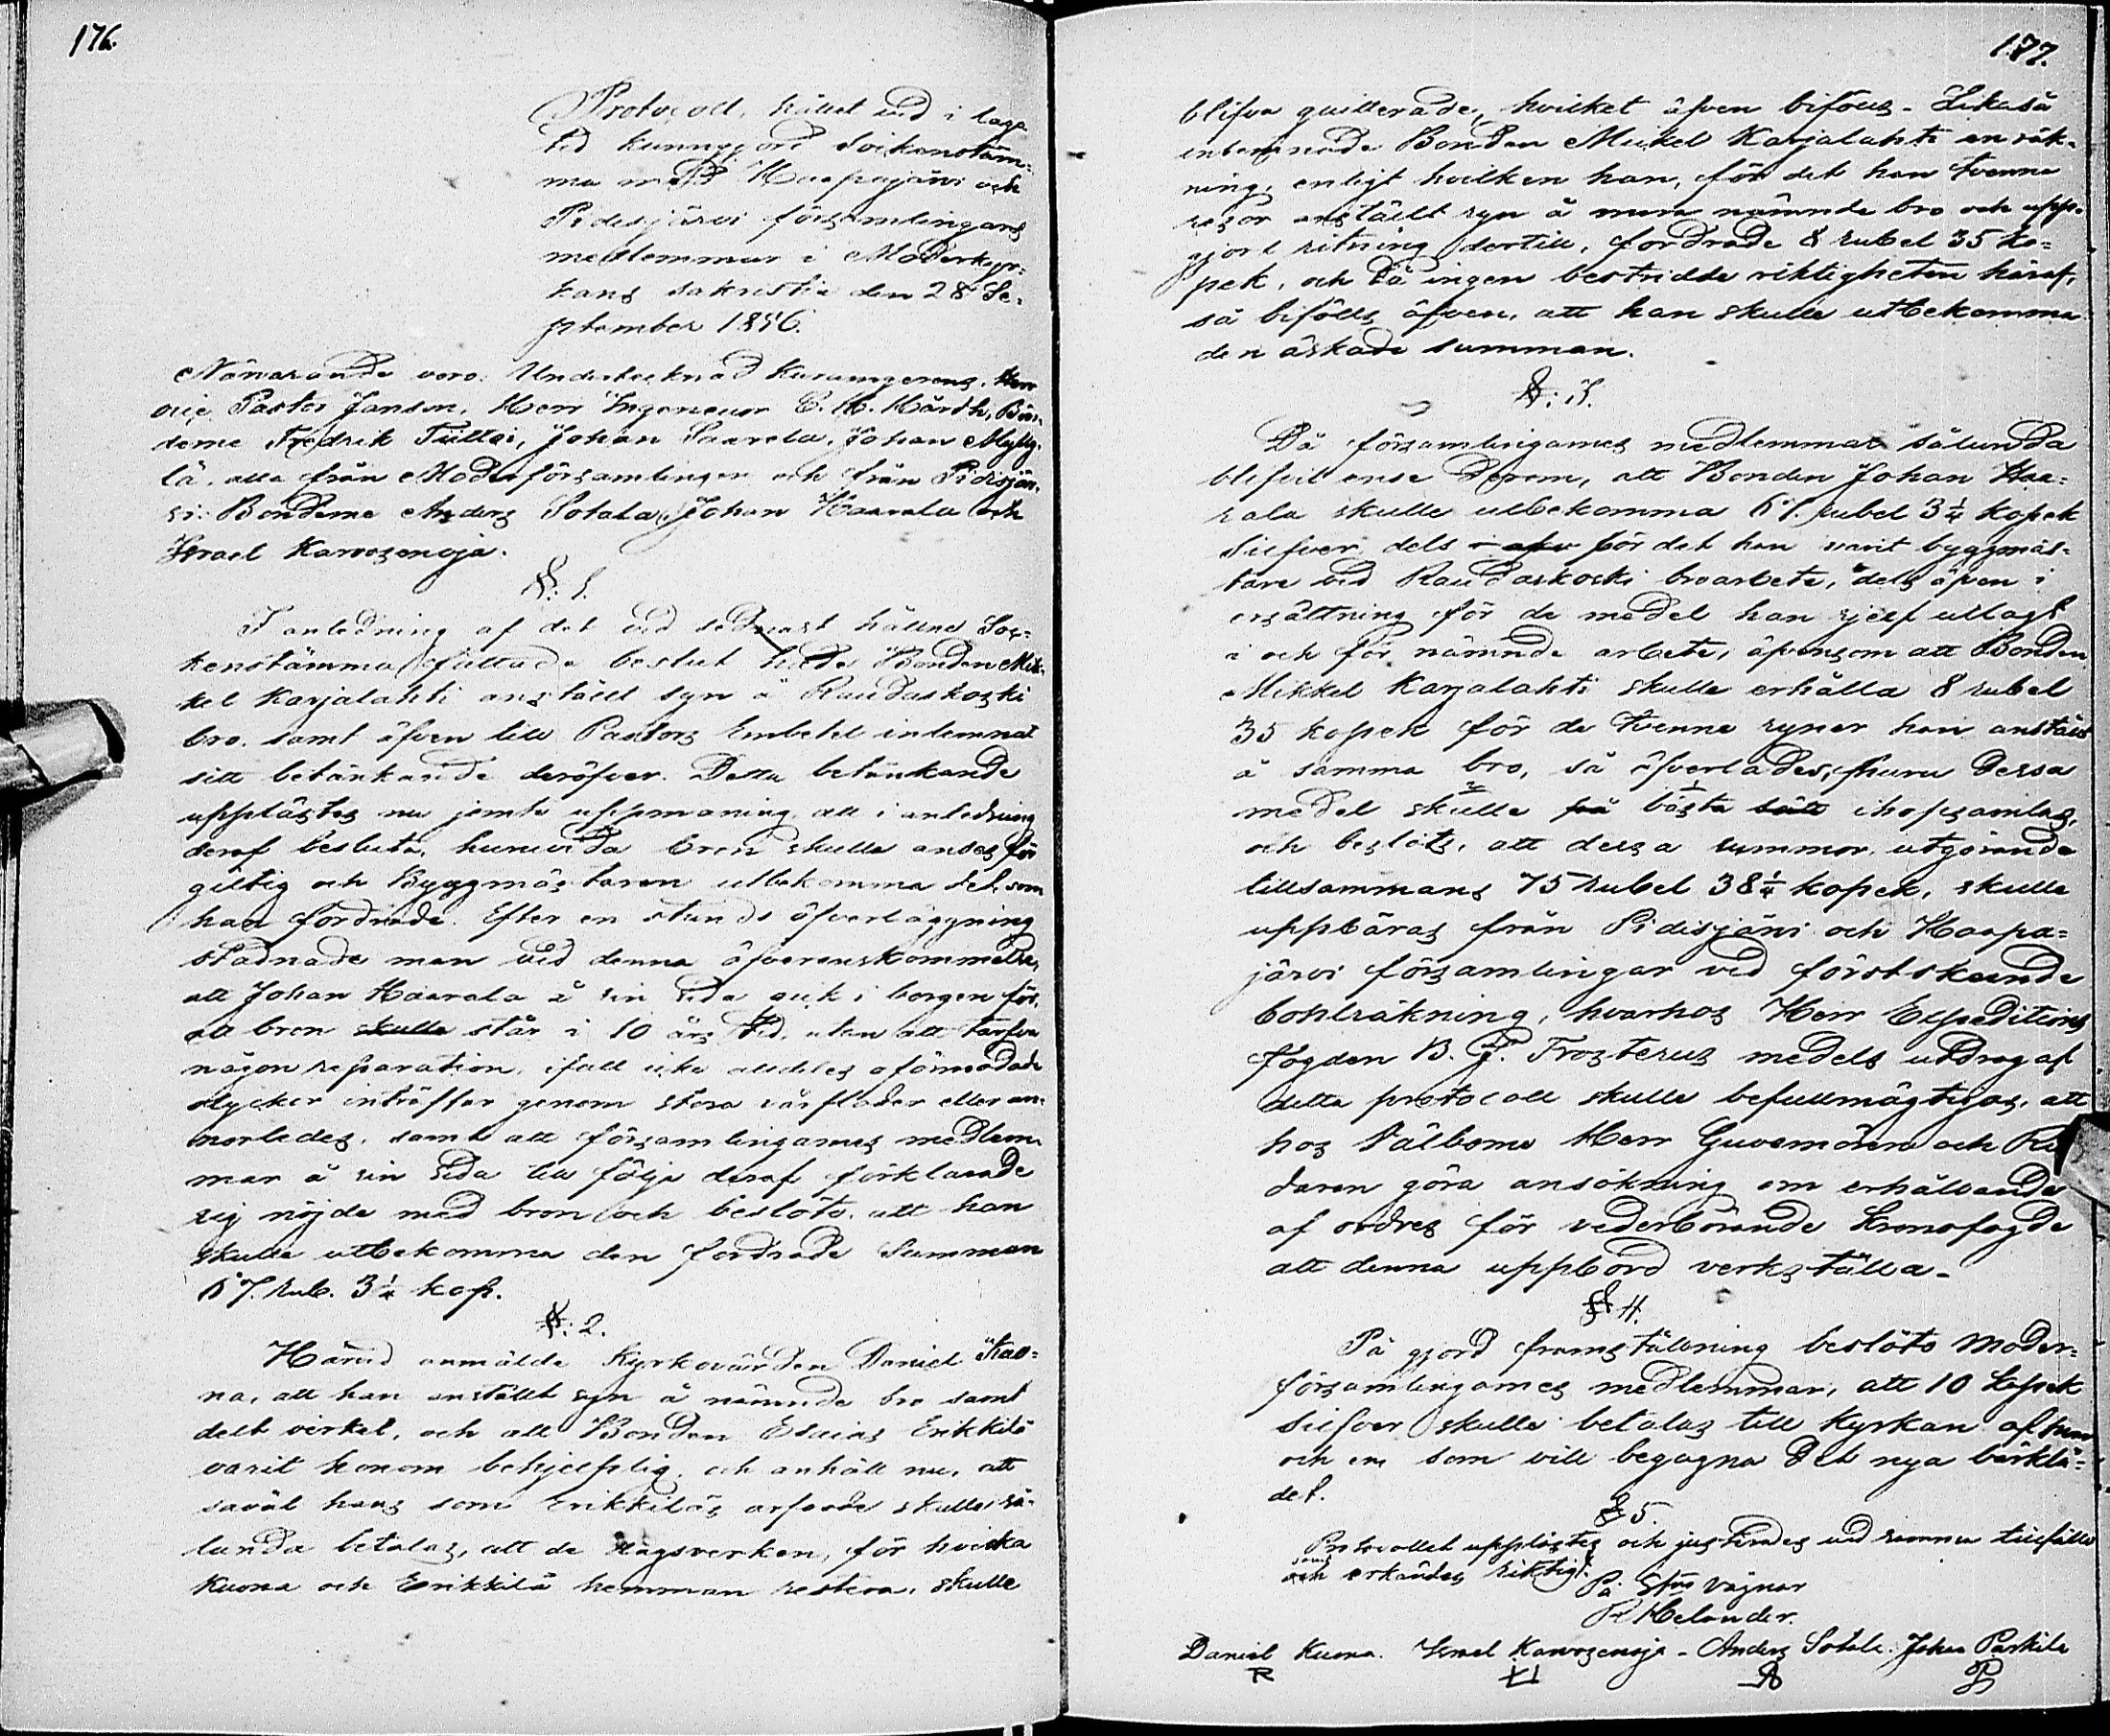 176.
Protocoll, hållet vid i laga
tid kunngjord Sockenstäm-
ma med Haapajärvi och
Pidisjärvi församlingars
medlemmar i Moderkyr-
kans sakristia den 28 Se-
ptember 1856.
Närvarande voro: Undertecknad Kuramgerens, Herr
vice Pastor Janson, Herr Ingeneuer C. A. Mårdh, Bön-
derne Fredrik Tiitto, Johan Saarela, Johan Mylly-
lä, alla från Moderförsamlingen och från Pidisjär-
vi: Bönderne Anders Sotala, Johan Haarala och
Israel Karvosenoja.
§: 1.
I anledning af det vid sednast hållne Soc-
kenstämma fattade beslut hade Bonden Mik-
kel Karjalahti anställt syn å Raudaskoski
bro, samt äfven till Pastors Embetet inlemnat
sitt betänkande deröfver. Detta betänkande
upplästes nu jemte uppmaning att i anledning
deraf besluta, huruvida bron skulle anses för
giltig och Byggmästaren utbekomma det, som
han fordrade. Efter en stunds öfverläggning
stadnade man vid denna öfverenskommelse,
att Johan Haarala å sin sida gick i borgen för,
att bron skulle står i 10 års tid, utan att tarfva
någon reparation, ifall icke alldeles oförmodade
olyckor inträffar genom stora vårfloder eller an-
norledes, samt att församlingarnes medlem-
mar å sin sida till följe deraf förklarade
sig nöjde med bron och beslöto, att han
skulle utbekomma den fordrade Summan
67. rub. 3¼ kop.
§: 2.
Härvid anmälde Kyrkovärden Daniel Kuo-
na, att han anställt syn å nämnde bro samt
dess virket, och att Bonden Esaias Erikkilä
varit honom behjelplig, och anhåll nu, att
saväl hans som Erikkiläs arfvode skulle så-
lunda betalas, att de dagsverken, för hvilka
Kuona och Erikkilä hemman restera, skulle
177.
blifva quitterade, hvilket äfven bifölls. Likaså
inlemnade Bonden Mickel Karjalahti en räk-
ning, enligt hvilken han, för det han tvenne
resor anställt syn å mera nämnde bro och upp-
gjort ritning dertill, fordrade 8 rubel 35 ko-
pek, och då ingen bestridde riktigheten häraf,
så bifölls äfven, att han skulle utbekomma
den äskade summan.
§: 3.
Då församlingarnes medlemmar sålunda
blifvit ense derom, att Bonden Johan Haa-
rala skulle utbekomma 67. rubel 3¼ kopek
Silfver dels för det han varit byggmäs-
tare vid Raudaskoski broarbete, dels äfven i
ersättning för de medel han sjelf utlagt
i och för nämnde arbete, äfvensom att Bonden
Mikkel Karjalahti skulle erhålla 8 rubel
35 kopek för de tvenne syner han anställt
å samma bro, så öfverlades, huru dessa
medel skulle på bästa sätt ihopsamlas,
och beslöts, att dessa summor, utgörande
tillsammans 75 rubel 38¼ kopek, skulle
uppbäras från Pidisjärvi och Haapa-
järvi församlingar vid förstskeende
bohlräkning, hvarhos Herr Expeditions
fogden B. F. Frosterus medels utdrag af
detta protocoll skulle befullmägtigas, att
hos Välborne Herr Guvernören och Ri
daren göra ansökning om erhållande
af ordres för vederbörande Kronofogde
att denna uppbörd verkställa.
§ 4.
På gjord framställning beslöto moder-
församlingarnes medlemmar, att 10 kopek
silfver skulle betalas till Kyrkan af hvar
och en som vill begagna det nya bårklä-
det.
§ 5.
Protocollet upplästes och justerades vid samma tillfälle
samt
och erkändes riktigt.
På Stns vägnar
R Helander.
Daniel Kuona. Israel Karvosenoja. Anders Sotala. Johan Parkila